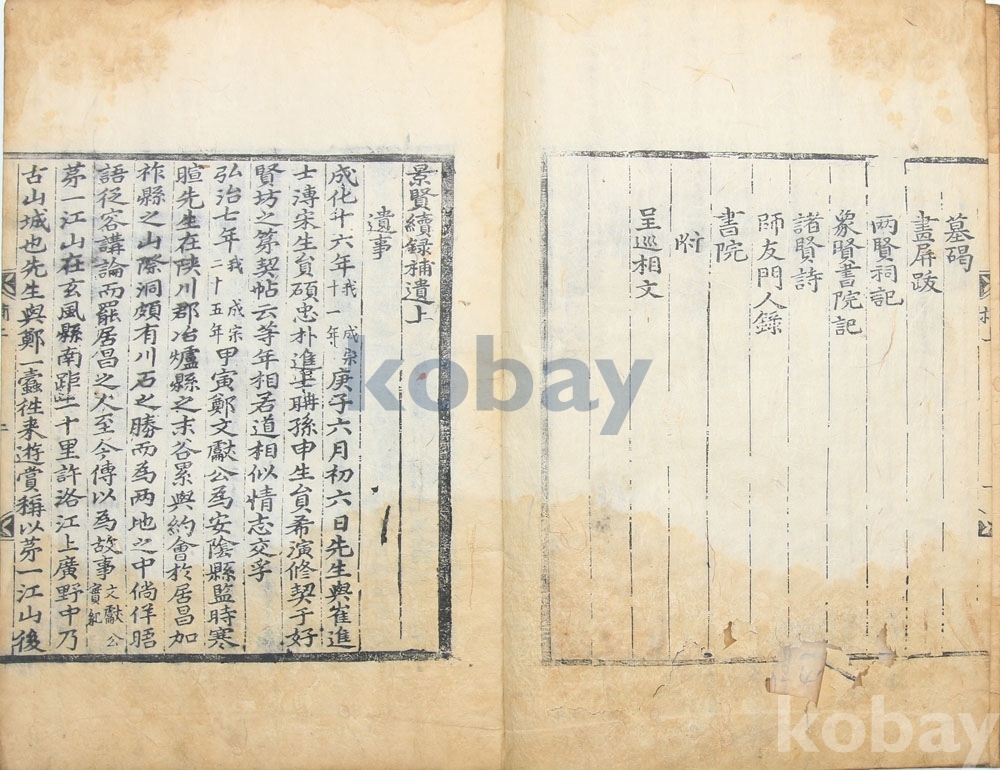 墓碣
畫屏跋
兩賢祠記
象賢書院記
諸賢詩
師友門人錄
書院
附
呈巡相文
景賢續錄補遺上
遺事
成化十六年我成宗十一年庚子六月初六日先生與崔進
士溥宋生員碩忠朴進士聃孫申生員希演修契于好
賢坊之第契帖云等年相若道相似情志交孚
弘治七年我成宗二十五年甲寅鄭文獻公為安陰縣監時寒
暄先生在陜川郡冶爐縣之末谷累與約會於居昌加
祚縣之山際洞頗有川石之勝而為兩地之中倘佯晤
語從容講論而罷居昌之人至今傳以為故事文獻公實紀
茅一江山在玄風縣南距二十里許洛江上廣野中乃
古山城也先生與鄭一蠹徃来遊賞稱以茅一江山後
kobay
kobay